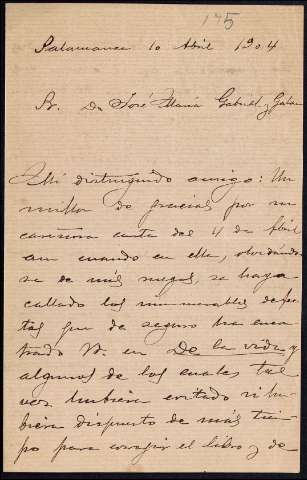 145
Salamanca 10 Abril 1904
Sr. Dn José María Gabriel y Galán
Mi distinguido amigo: Un
millon de gracias por su
cariñosa carta del 4 de Abril
aun cuando en ella, olvidándo-
se de mis ruegos, se haya
callado los innumerables defec-
tos que de seguro ha encon-
trado V. en De la vida y
algunos de los cuales tal
vez hubiera evitado si hu-
biera dispuesto de más tiem-
po para corregir el libro y de